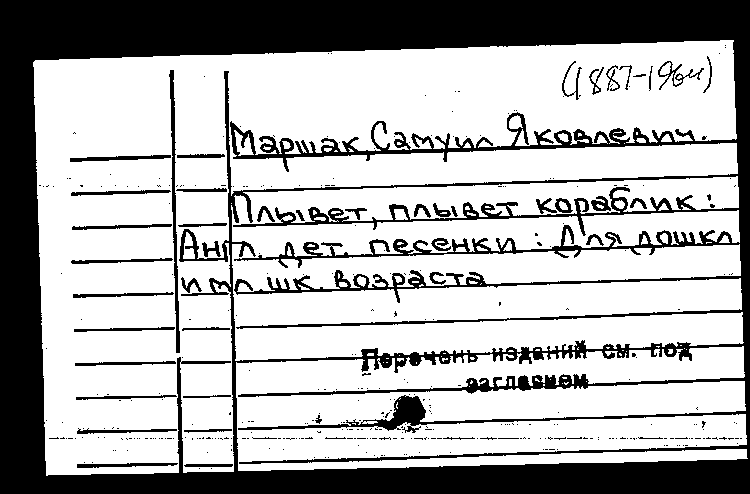 (1887-1964)
Маршак, Самуил Яковлевич.
Плывет, плывет кораблик :
Англ. дет. песенки : Для дошкл
и мл. шк. возраста
Перечень изданий см. под
заглавием